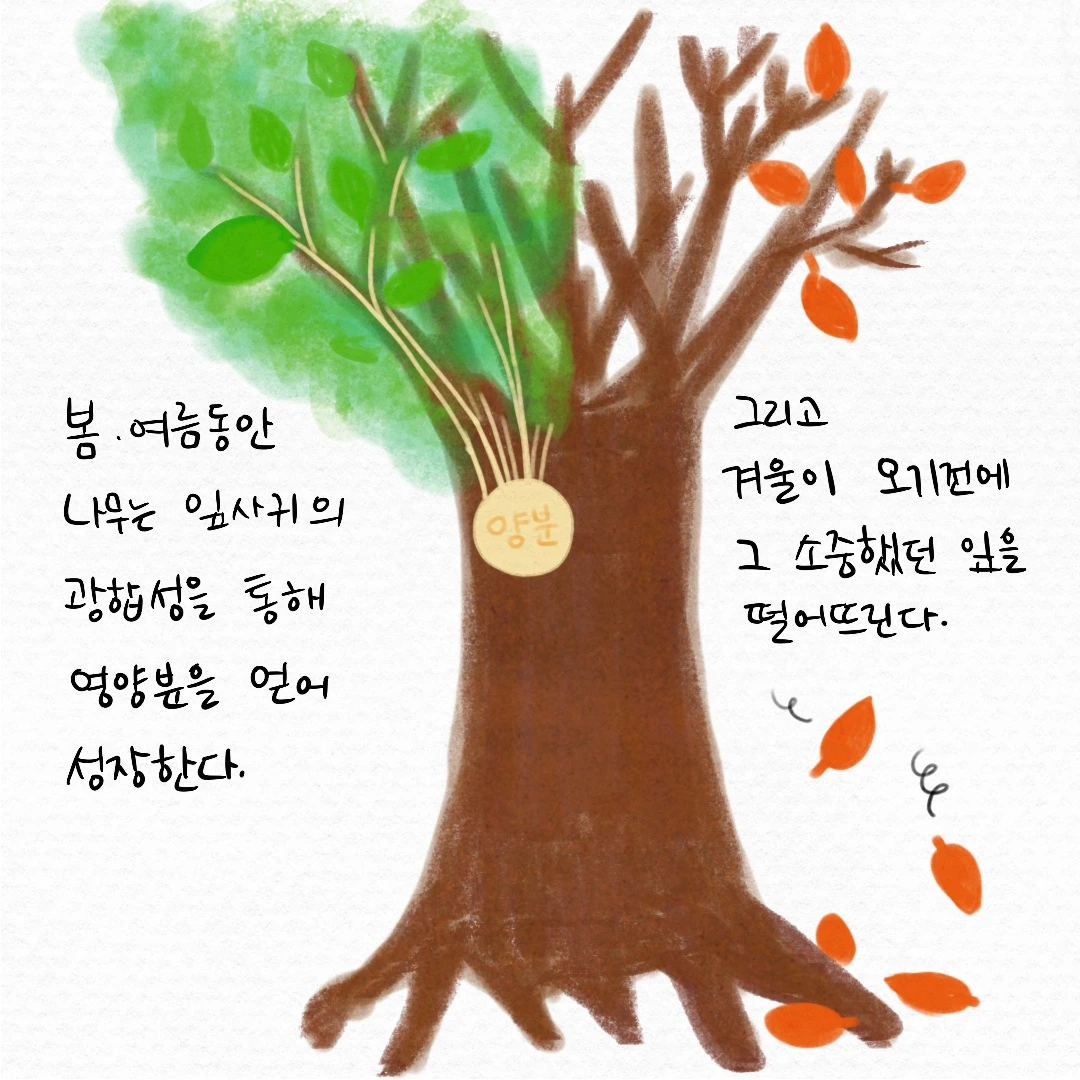 봄.여름동안
나무는 잎사귀의
광합성을 통해
영양분을 얻어
성장한다.
양분
그리고
겨울이 오기전에
그 소중했던 잎을
떨어뜨린다.